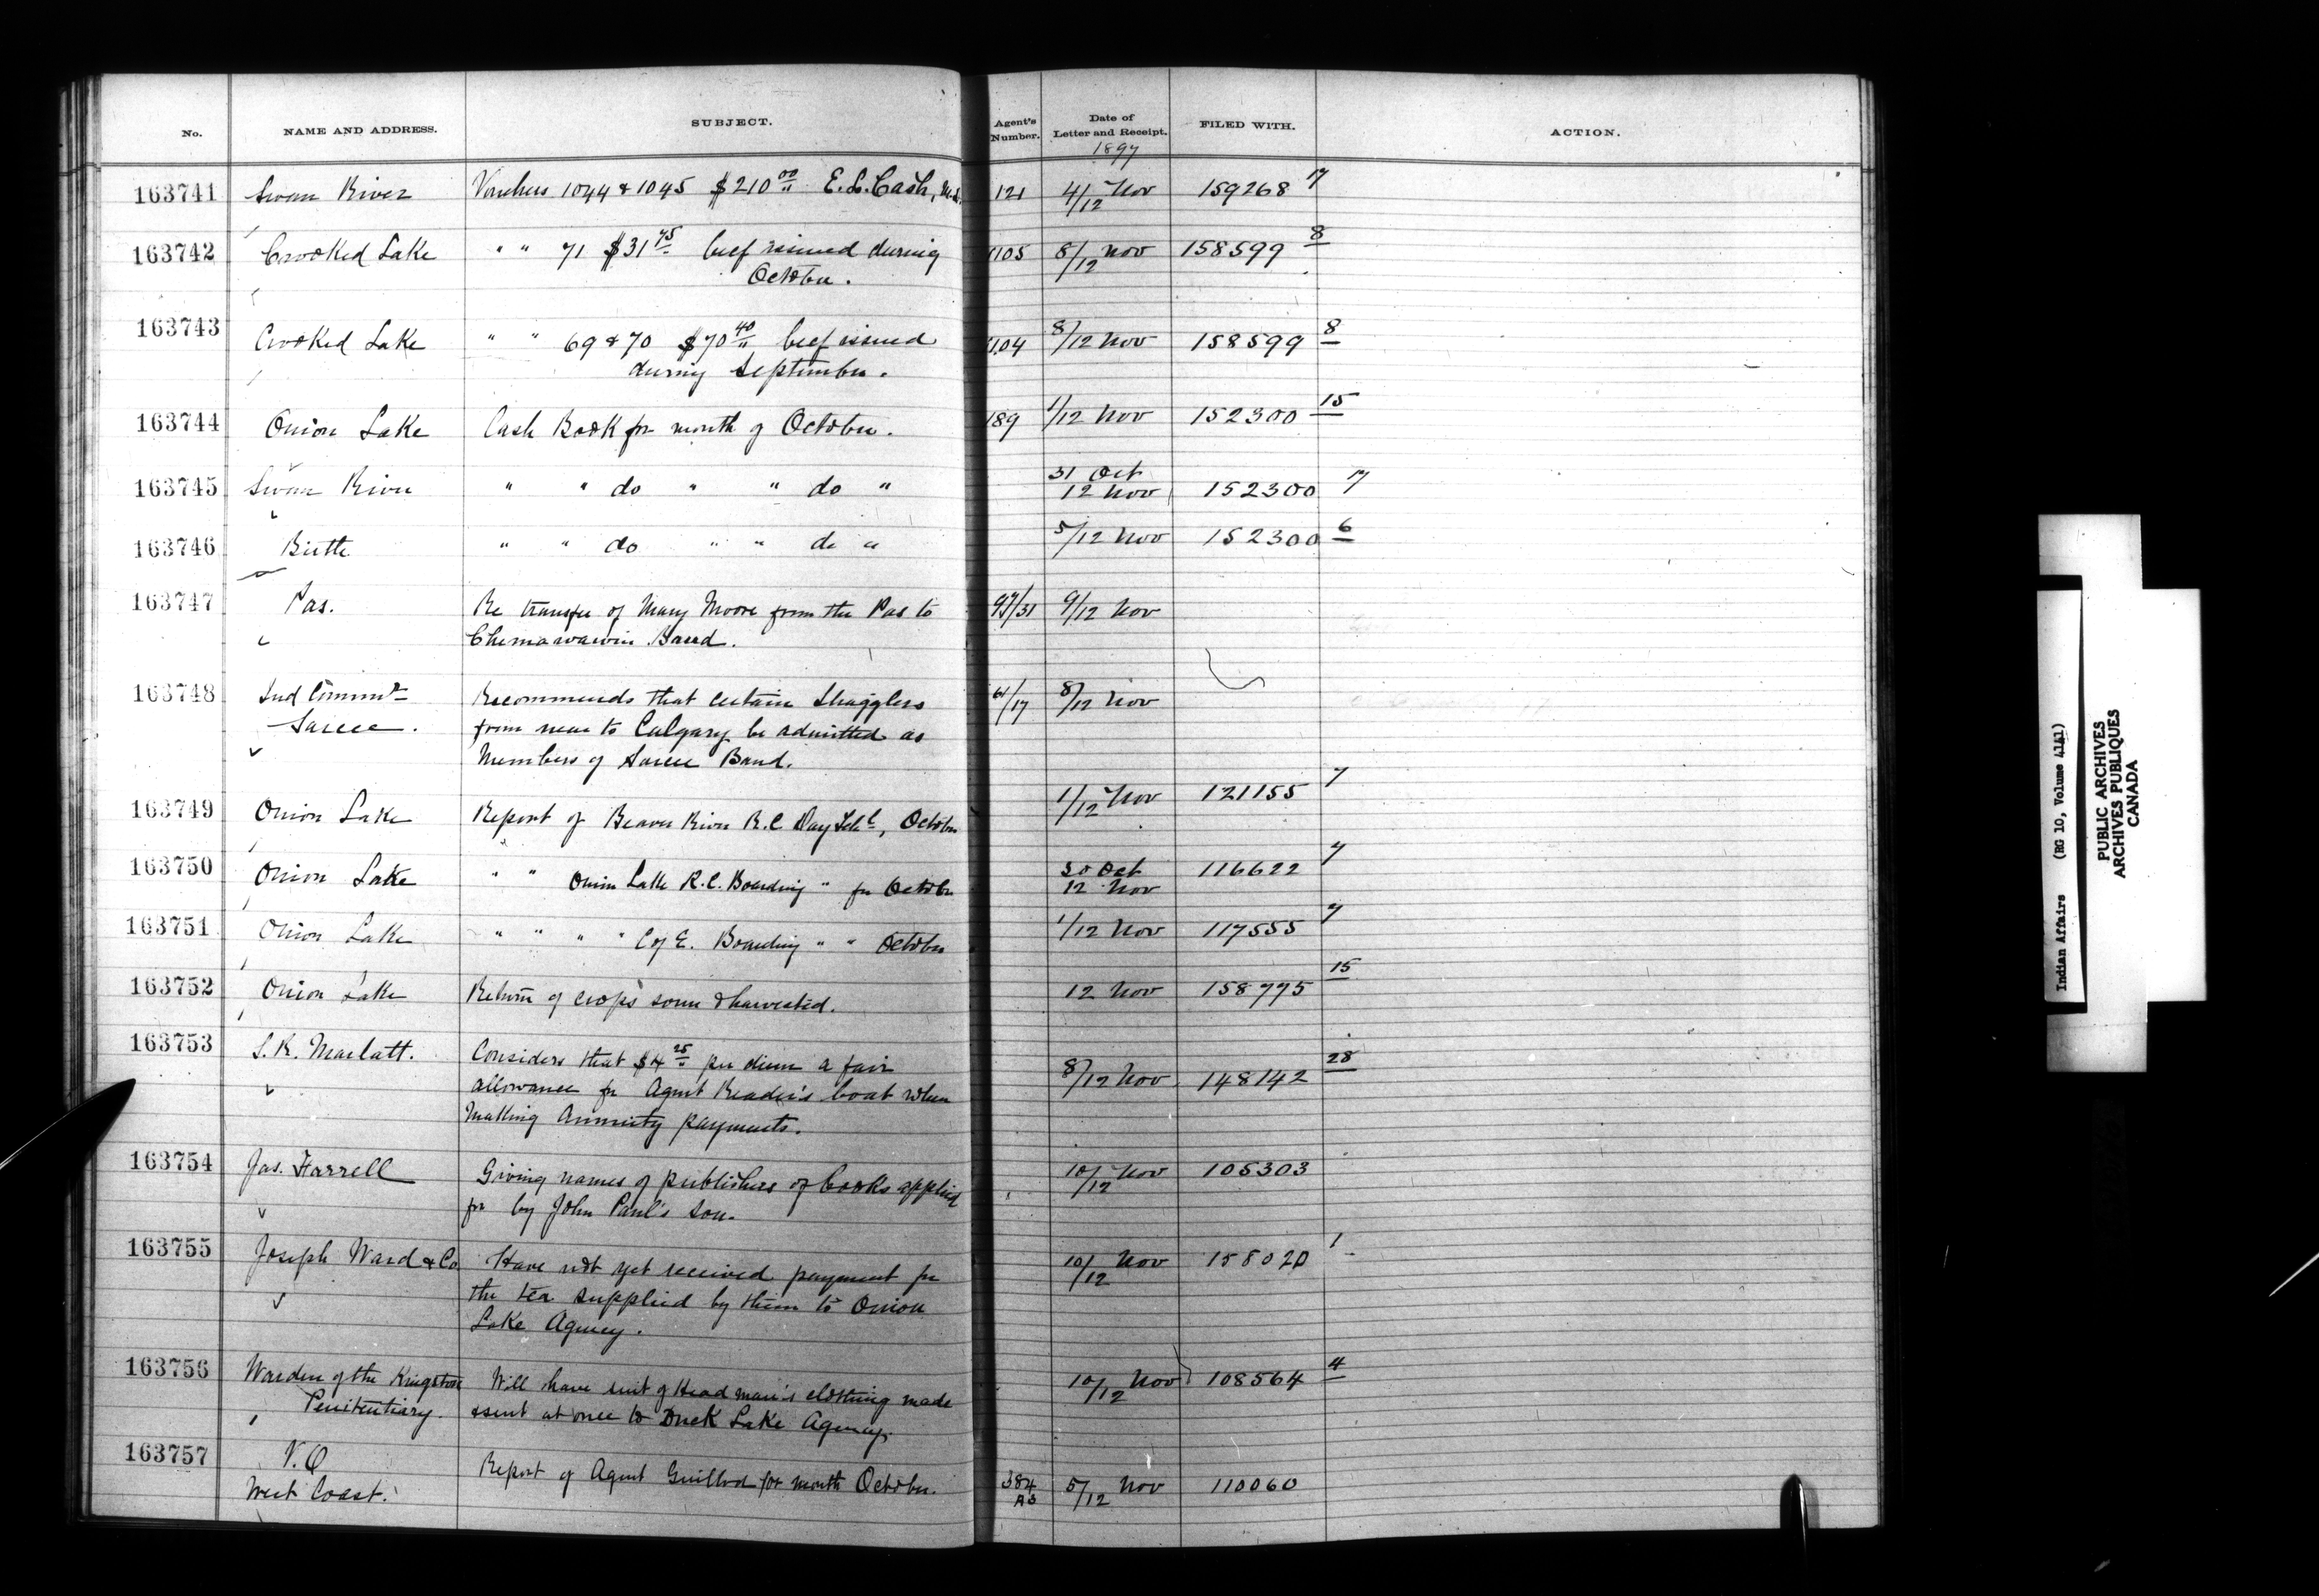 No. NAME AND ADDRESS. SUBJECT. Agent's Number. Date of Letter and Receipt. FILED WITH. ACTION.
1897
163741 Swan River Vouchers 1044 & 1045 $210 00 E. L. Cash, M.D. 121 4/12 Nov 159268 7
163742 Crooked Lake " " 71 $31 75 beef issued during 1105 8/12 Nov 158599 8
October.
163743 Crooked Lake " " 69 & 70 $70 40 beef issued 1104 8/12 Nov 158599 8
during September.
163744 Onion Lake Cash Book for month of October. 189 1/12 Nov 152300 15
163745 Swan River " " do " " do " 31 Oct
12 Nov 152300 7
163746 Birtle " " do " " do " 5/12 Nov 152300 6
163747 Pas. Re transfer of Mary Moore from the Pas to 97/31 9/12 Nov
Chemawawin Band.
163748 Ind Commr Recommends that certain stragglers 61/17 8/12 Nov
Sarcee. from near to Calgary be admitted as
Members of Sarcee Band.
163749 Onion Lake Report of Beaver River R.C. Day Schl, October 1/12 Nov 121155 7
163750 Onion Lake " " Onion Lake R.C. Boarding " for October 30 Oct
12 Nov 116622 7
163751 Onion Lake " " " " C of E. Boarding " " October 1/12 Nov 117555 7
163752 Onion Lake Return of crops sown & harvested. 12 Nov 158775 15
163753 S. R. Marlatt. Considers that $4 25 per diem a fair 8/12 Nov 148142 28
allowance for Agent Reader's boat when
making Annuity payments.
163754 Jas. Farrell Giving names of publishers of books applied 10/12 Nov 105303
for by John Paul's son.
163755 Joseph Ward & Co Have not yet received payment for 10/12 Nov 158020 1
the tea supplied by them to Onion
Lake Agency.
163756 Warden of the Kingston Will have suit of Head man's clothing made 10/12 Nov 108564 4
Penitentiary. & sent at once to Duck Lake Agency.
163757 V.O
West Coast. Report of Agent Guillod for month October. 384 5/12 Nov 110060
Indian Affairs (RG 10, Volume 4141)
PUBLIC ARCHIVES
ARCHIVES PUBLIQUES
CANADA